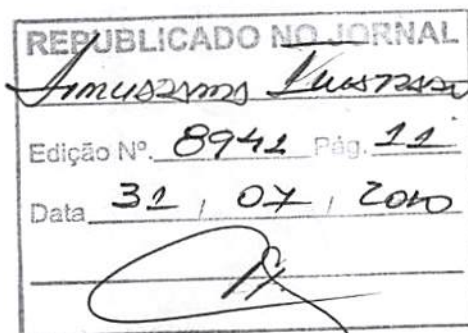 REPUBLICADO NO JORNAL
Umuarama Ilustrado
Edição Nº. 8941 Pág. 11
Data 31 / 07 / 2010